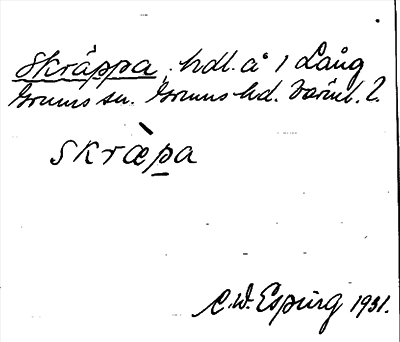 Skräppa, hdl. å 1 Lång
Grums sn. Grums hd. Värml. l.
skræ̀p̲a
C.W. Esping 1931.